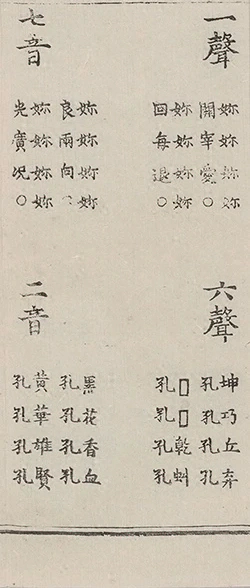 一聲
妳妳妳妳
開宰愛○
妳妳妳妳
回每退○
七音
妳妳妳妳
良兩向
妳妳妳妳
光廣况○
六聲
坤巧丘弃
孔孔孔孔
□□乾虯
孔孔孔孔
二音
黑花香血
孔孔孔孔
黃華雄賢
孔孔孔孔